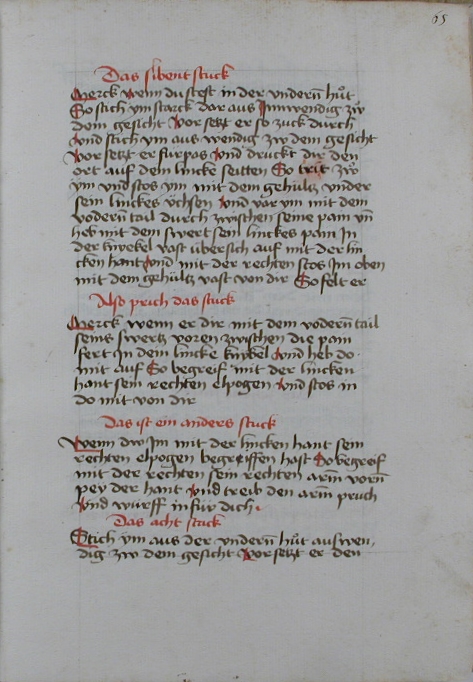 65
Das sibent stuck
Merck wenn du stest in der undern̄ hůt
So stich ym starck dar aus Innwendig zw̄
dem gesicht vor setzt er so zuck durch
und stich ym aus wendig zw dem gesicht
vor setzt er furpas und druckt dir den
ort auf dem lincke seitten So trit zw̄
ym und stos ym mit dem gehültz under
sein linckes üchsen und var ym mit dem
vodern̄ tail durch zwischen seine pain un̄
heb mit dem swert sein linckes pain In
der knyekel vast übersich auf mit der lin
cken hant und mit der rechten stos Im oben
mit dem gehültz vast von dir So felt er
Also prich das stuck
Merck wenn er dir mit dem vodern̄ tail
seins swertz voren zwischen die pain
fert In dem lincke knykel und heb do
mit auf So begreif mit der lincken
hant sein rechten elpogen und stos in
do mit von dir
Das ist ein anders stuck
Wenn dw Im mit der lincken hant sein
rechten elpogen begreiffen hast So begreif
mit der rechten sein rechten arm vorn̄
pey der hant und treib den arm pruch
und wurff in für dich
Das acht stuck
Stich ym aus der undern̄ hůt auswen,
dig zw dem gesicht vor setzt er den